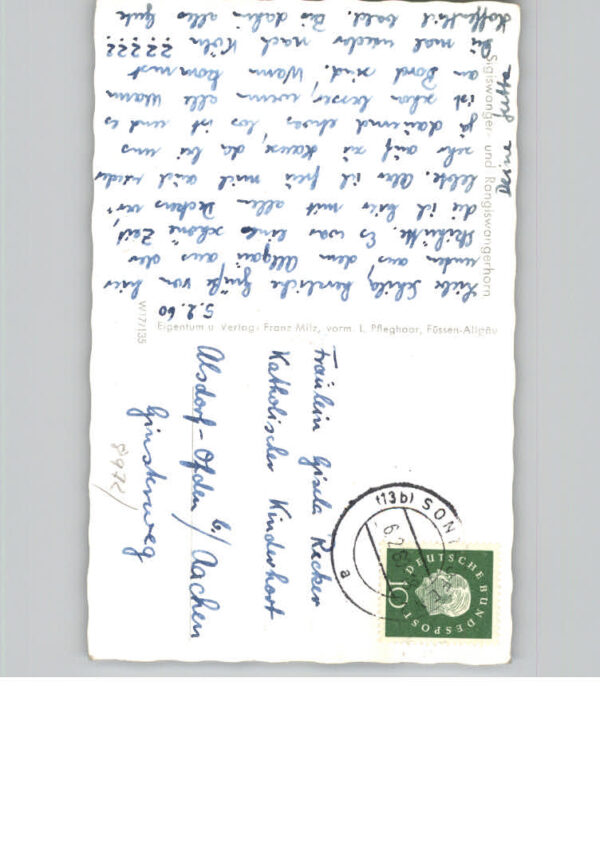 5.2.60
Liebe Gisela, herzliche Grüße von hier
unten aus dem Allgäu aus der
Skihütte. Es war eine schöne Zeit,
die ich hier mit allen ver-
lebte. Aber ich freu mich auch wieder
sehr auf zu Hause, da bei uns
ja dauernd etwas los ist und es
ist schon besser, wenn alle Mann
an Bord sind. Wann kommst
Du mal wieder nach Köln ?????
Hoffentlich bald. Bis dahin alles Gute
Deine Jutta
Sigiswanger- und Rangiswangerhorn
W/17/135
Eigentum u. Verlag: Franz Milz, vorm. L. Pfleghaar, Füssen-Allgäu
Fräulein Gisela Recker
Katholischer Kinderhort
Alsdorf-Ofden b/ Aachen
Ginsterweg
(13b) SONT
6.2.6
a
DEUTSCHE BUNDESPOST
10